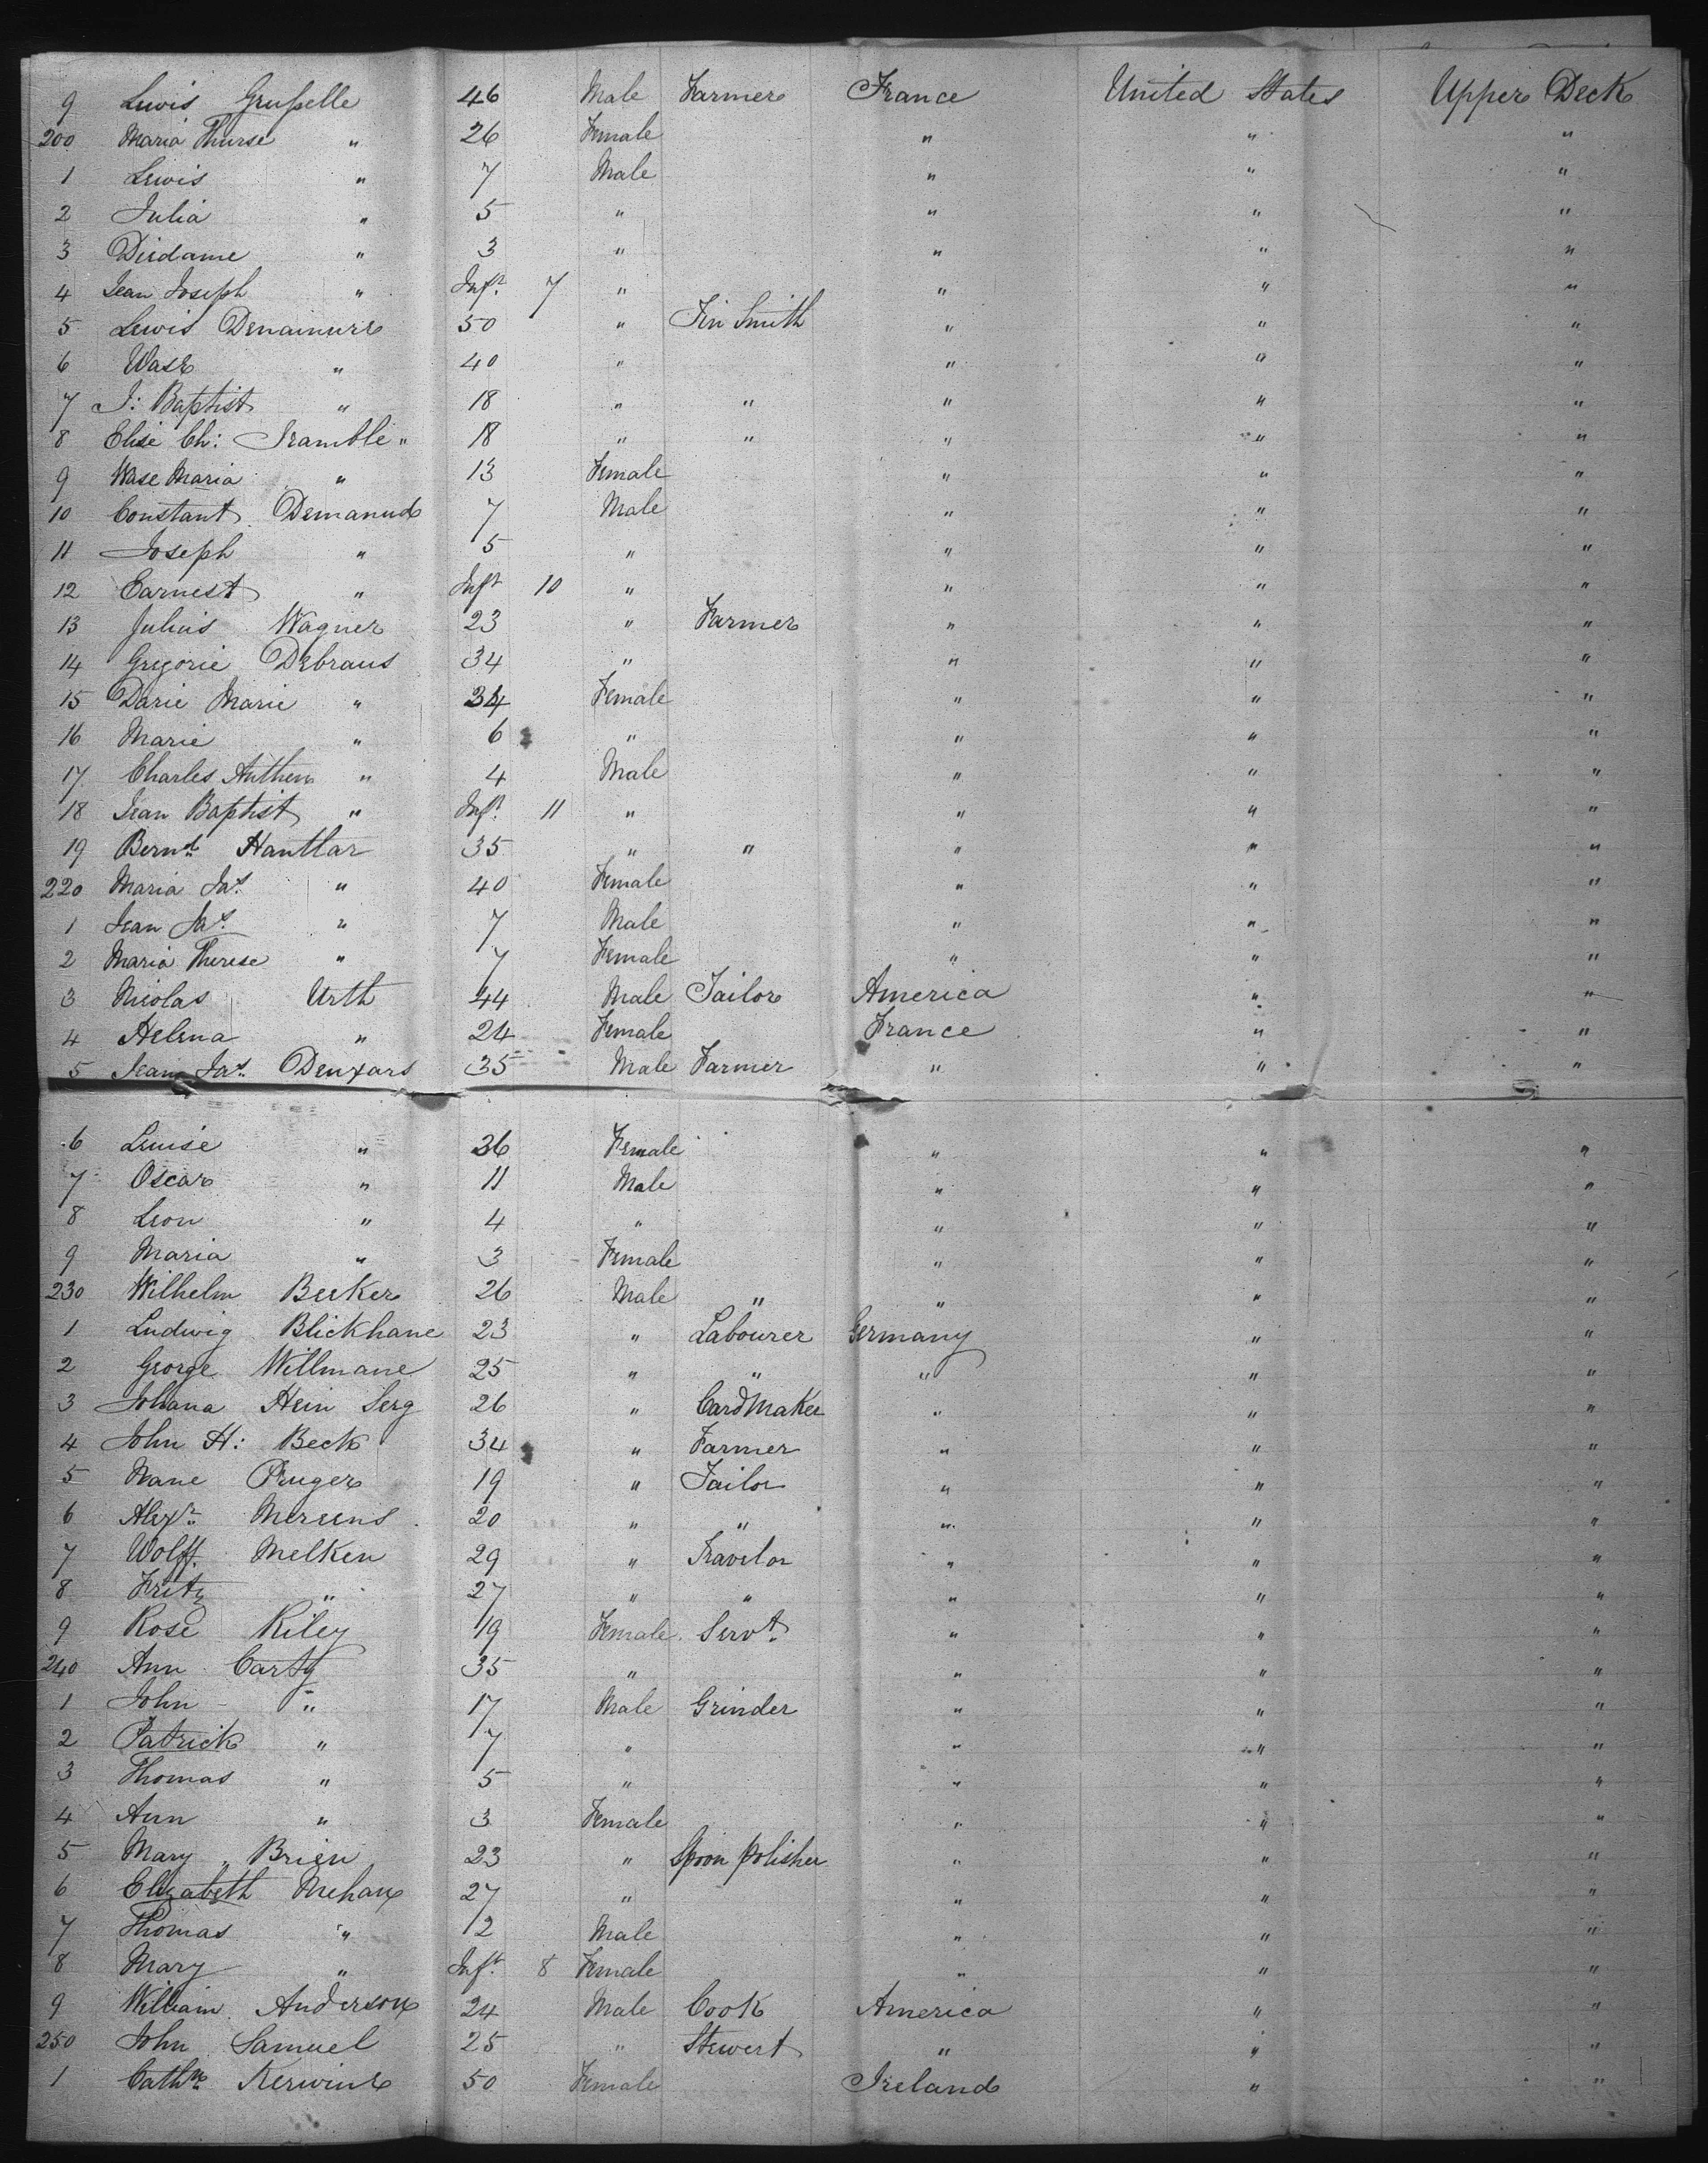 9 Lewis Grusselle 46 Male Farmer France United States Upper Deck
200 Maria Thurse " 26 Female " " "
1 Lewis " 7 Male " " "
2 Julia " 5 " " " "
3 Diedame " 3 " " " "
4 Jean Joseph " Inft. 7 " " " "
5 Lewis Denamure 50 " Tin Smith " " "
6 Wase " 40 " " " "
7 J: Baptist " 18 " " " " "
8 Elise Ch: Tramble " 18 " " " " "
9 Wase Maria " 13 Female " " "
10 Constant Demanud 7 Male " " "
11 Joseph " 5 " " " "
12 Earnest " Inft 10 " " " "
13 Julius Wagner 23 " Farmer " " "
14 Gregorie Debraus 34 " " " "
15 Darie Marie " 34 Female " " "
16 Marie " 6 " " " "
17 Charles Anthem " 4 Male " " "
18 Jean Baptist " Inft. 11 " " " "
19 Bernd. Hantlar 35 " " " " "
220 Maria Jas. " 40 Female " " "
1 Jean Jas. " 7 Male " " "
2 Maria Therese " 7 Female " " "
3 Nicolas Urth 44 Male Tailor America " "
4 Helena " 24 Female France " "
5 Jean Jas. Denxars 35 Male Farmer " " "
6 Leuise " 36 Female " " "
7 Oscar " 11 Male " " "
8 Leon " 4 " " " "
9 Maria " 3 Female " " "
230 Wilhelm Becker 26 Male " " " "
1 Ludwig Blickhane 23 " Labourer Germany " "
2 George Willmane 25 " " " " "
3 Johana Hein Serg 26 " Card Maker " " "
4 John H: Beck 34 " Farmer " " "
5 Nane Pruger 19 " Tailor " " "
6 Alexr. Mersens 20 " " " " "
7 Wolff. Melken 29 " Travelor " " "
8 Fritz " 27 " " " " "
9 Rose Riley 19 Female Servt. " " "
240 Ann Carty 35 " " " "
1 John " 17 Male Grinder " " "
2 Patrick " 7 " " " "
3 Thomas " 5 " " " "
4 Ann " 3 Female " " "
5 Mary Brien 23 " Spoon polisher " " "
6 Elizabeth Mehan 27 " " " "
7 Thomas " 2 Male " " "
8 Mary " Inft. 8 Female " " "
9 William Anderson 24 Male Cook America " "
250 John Samuel 25 " Stewert " " "
1 Cathne Kerwine 50 Female Ireland " "